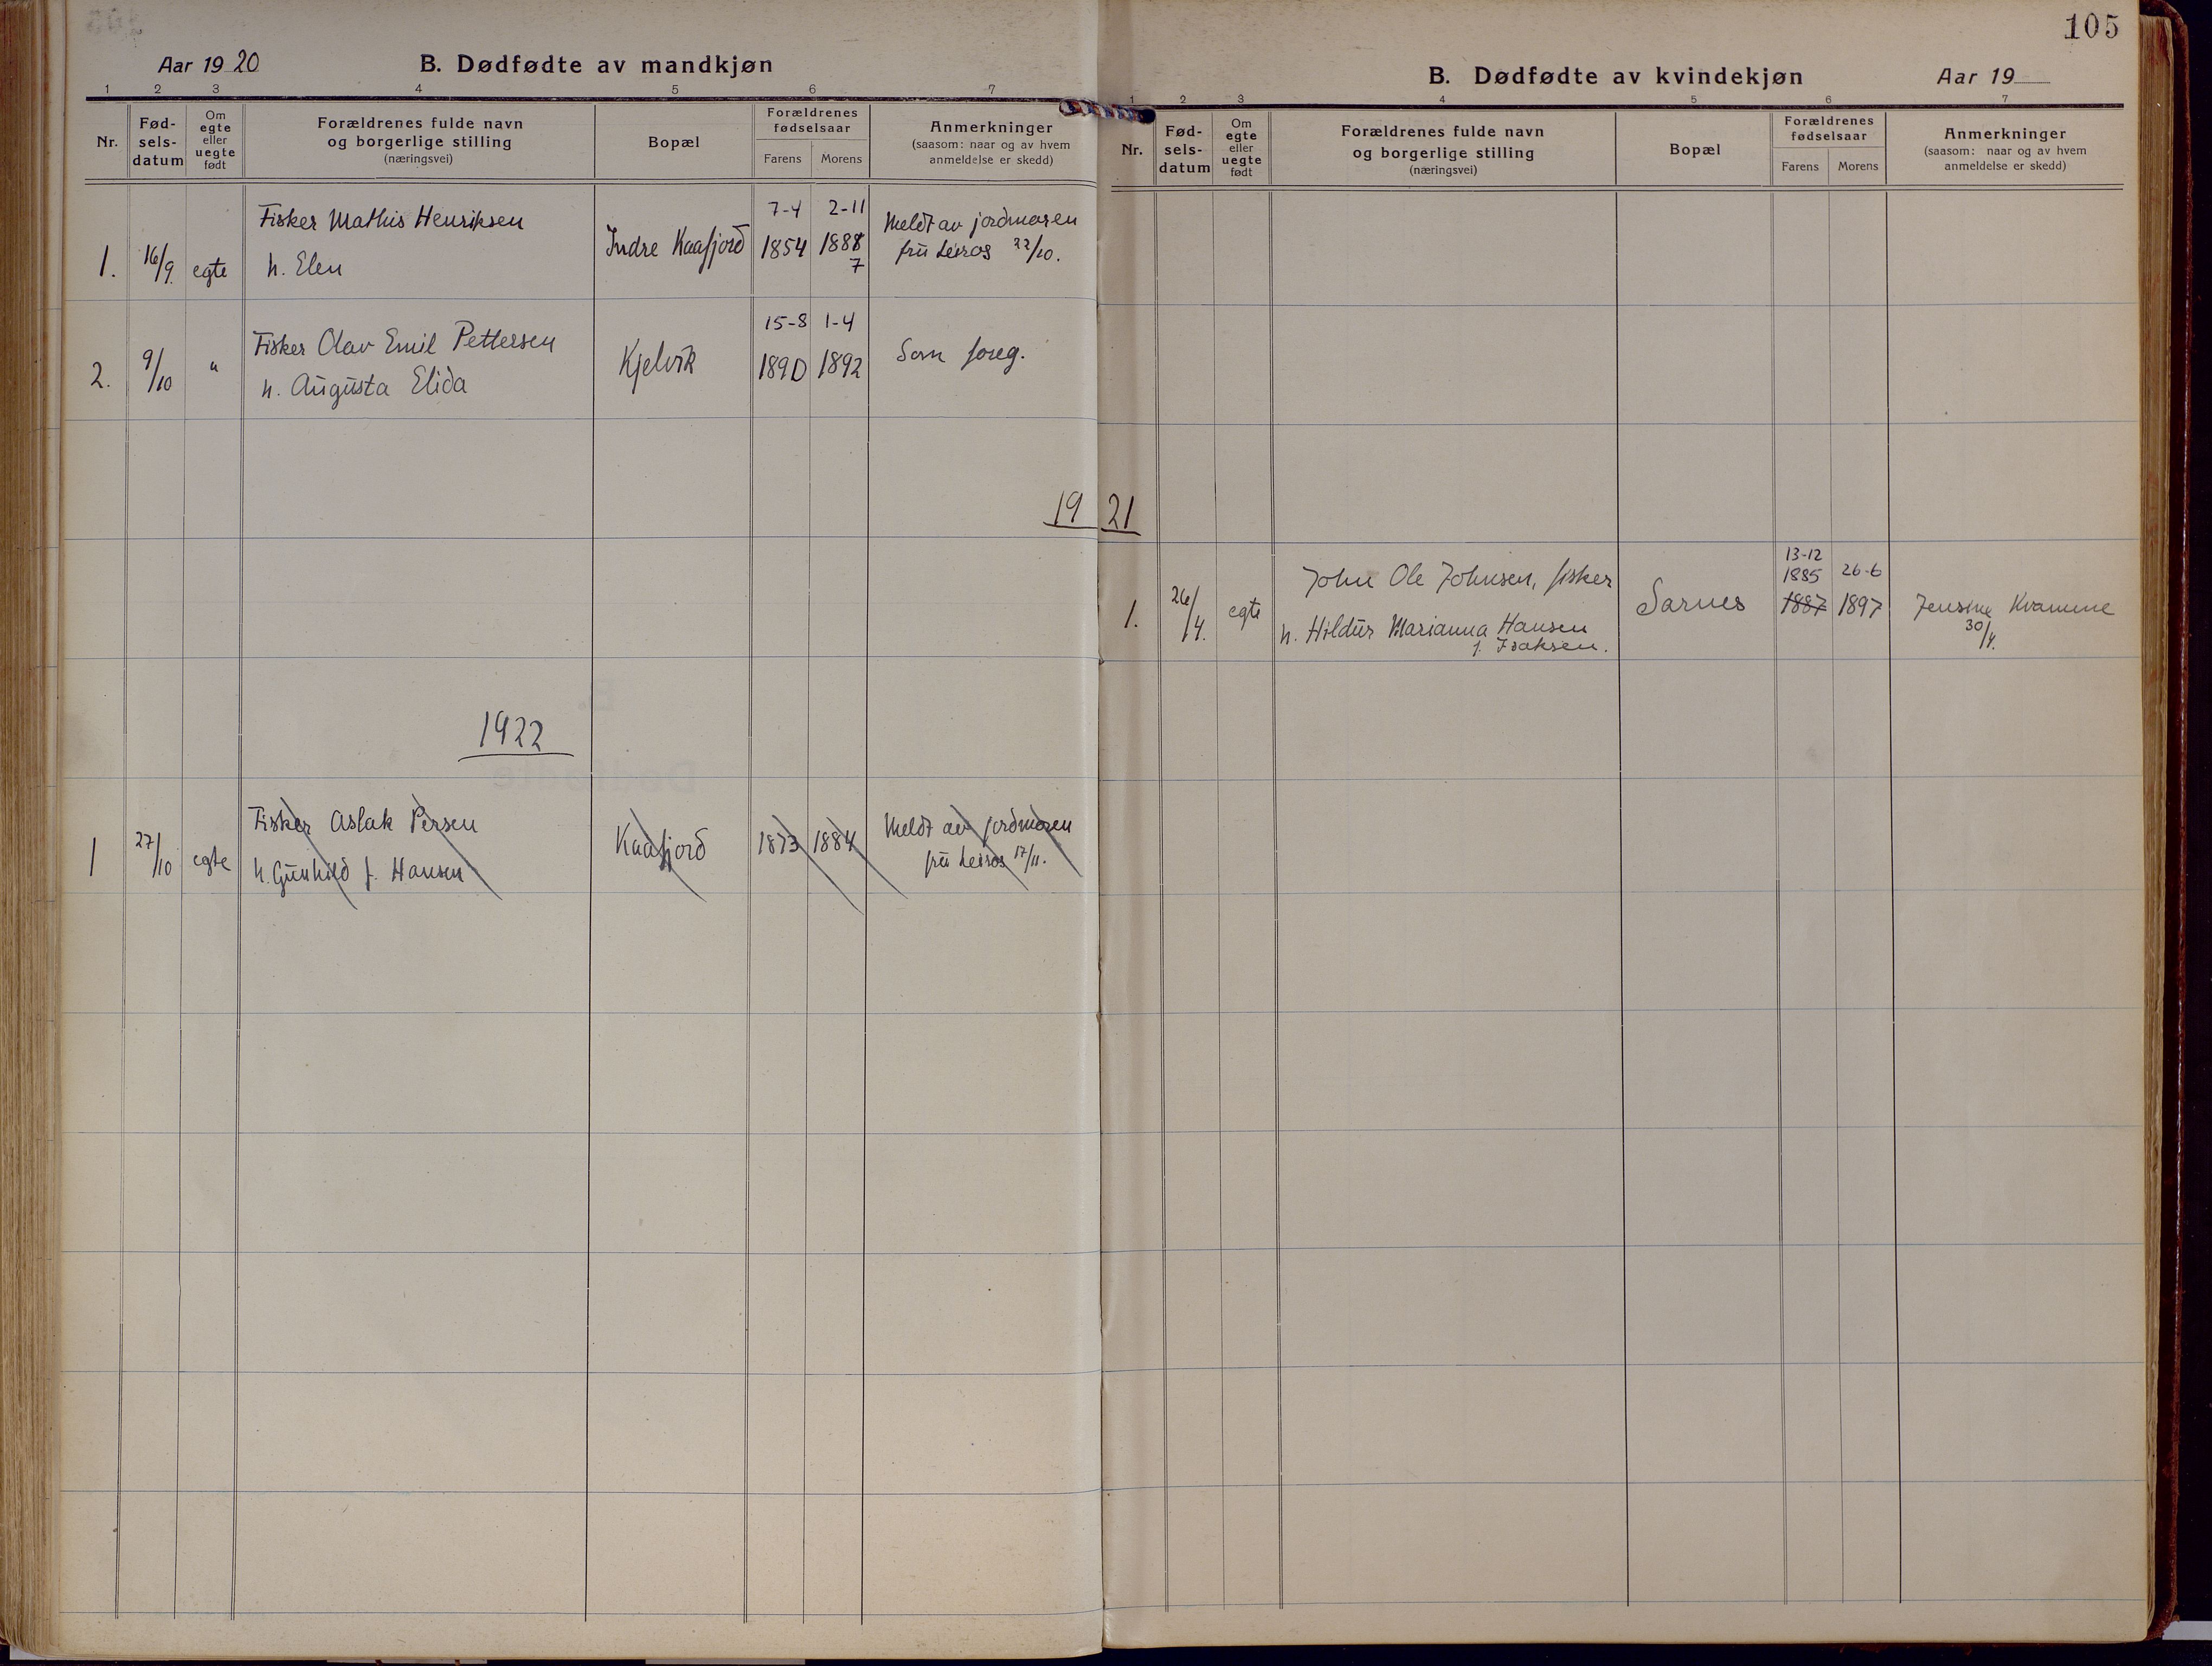 105
Aar 1920
B. Dødfødte av mandkjøn
1 2 3 4 5 6 7
Nr.
Fød-
sels-
datum
Om
egte
eller
uegte
født
Forældrenes fulde navn
og borgerlige stilling
(næringsvei)
Bopæl
Forældrenes
fødselsaar
Farens Morens
Anmerkninger
(saasom: naar og av hvem
anmeldelse er skedd)
Fisker Mathis Henriksen
1. 16/9. egte h. Elen
Indre Kaafjord
7-4 2-11
1854 1888
7
Meldt av jordmoren
frü Leiros 22/10.
Fisker Olav Emil Pettersen
2. 9/10 " h. Augusta Elida
Kjelvik
15-8 1-4
1890 1892
Som foreg.
19 21
1922
Fisker Aslak Persen
1 27/10 egte h. Gunhild f. Hansen
Kaafjord
1873 1884
Meldt av jordmoren
frü Leiros 17/11.
B. Dødfødte av kvindekjøn
Aar 19
1 2 3 4 5 6 7
Nr.
Fød-
sels-
datum
Om
egte
eller
uegte
født
Forældrenes fulde navn
og borgerlige stilling
(næringsvei)
Bopæl
Forældrenes
fødselsaar
Farens Morens
Anmerkninger
(saasom: naar og av hvem
anmeldelse er skedd)
John Ole Johnsen, fisker
1. 26/4. egte h. Hildur Marianna Hansen
f. Isaksen.
Sarnes
13-12
1885 26-6
1887 1897
Jensine Kvamme
30/4.